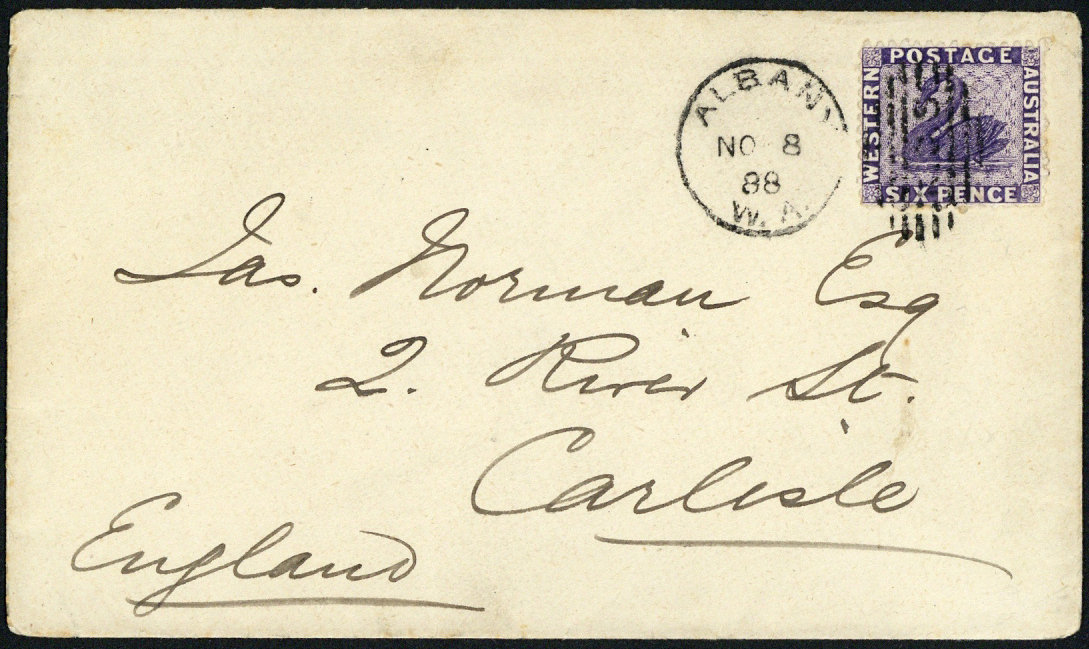 ALBANY
NO 8
88
W. A.
POSTAGE
WESTERN
AUSTRALIA
SIX PENCE
Jas. Norman Esq
2. River St.
Carlisle
England